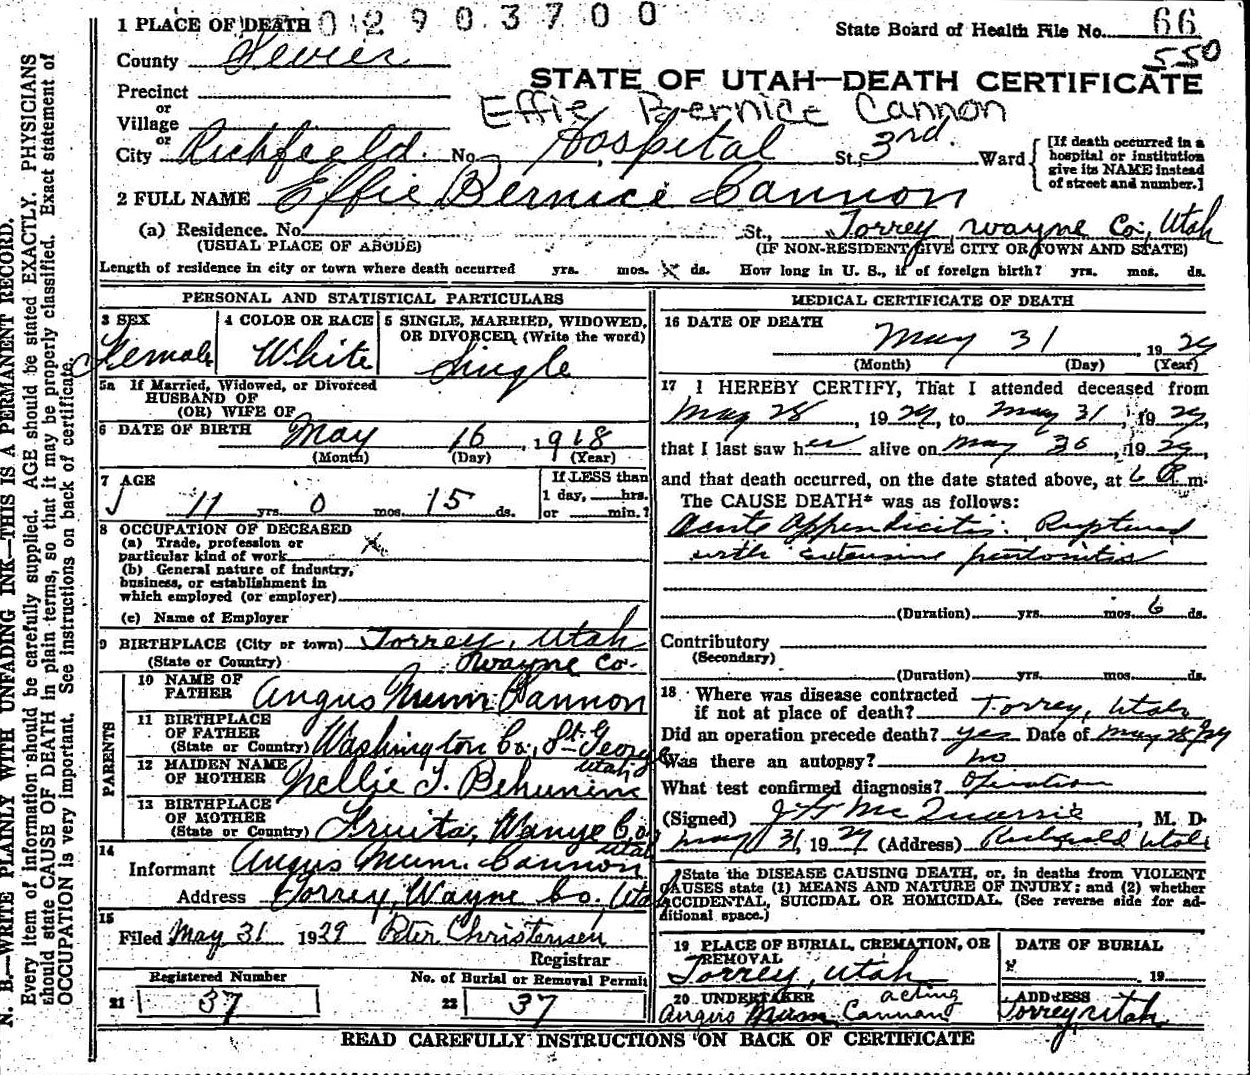 1 PLACE OF DEATH 0 2 9 0 3 7 0 0
State Board of Health File No. 66
550
County Sevier
STATE OF UTAH—DEATH CERTIFICATE
Precinct
Effie Bernice Cannon
or
Village
or
City Richfield. No. Hospital St., 3rd. Ward
[If death occurred in a hospital or institution give its NAME instead of street and number.]
2 FULL NAME Effie Bernice Cannon
(a) Residence. No. St., Torrey Wayne Co., Utah
(USUAL PLACE OF ABODE) (IF NON-RESIDENT GIVE CITY OR TOWN AND STATE)
Length of residence in city or town where death occurred yrs. mos. ds. How long in U. S., if of foreign birth? yrs. mos. ds.
PERSONAL AND STATISTICAL PARTICULARS
3 SEX
Female
4 COLOR OR RACE
White
5 SINGLE, MARRIED, WIDOWED, OR DIVORCED, (Write the word)
Single
5a If Married, Widowed, or Divorced
HUSBAND OF
(OR) WIFE OF
6 DATE OF BIRTH May 16, 1918
(Month) (Day) (Year)
7 AGE
11 yrs. 0 mos. 15 ds.
If LESS than
1 day, hrs.
or min.?
8 OCCUPATION OF DECEASED
(a) Trade, profession or
particular kind of work
(b) General nature of industry,
business, or establishment in
which employed (or employer)
(c) Name of Employer
9 BIRTHPLACE (City or town) Torrey, Utah
(State or Country) Wayne Co.
PARENTS
10 NAME OF
FATHER Angus Munn Cannon
11 BIRTHPLACE
OF FATHER
(State or Country) Washington Co., St. George
Utah
12 MAIDEN NAME
OF MOTHER Nellie T. Behunin
13 BIRTHPLACE
OF MOTHER
(State or Country) Fruita, Wanye Co.
Utah
14
Informant Angus Munn Cannon
Address Torrey, Wayne Co., Utah
15
Filed May 31 1929 Peter Christensen
Registrar
Registered Number No. of Burial or Removal Permit
21 37 22 37
MEDICAL CERTIFICATE OF DEATH
16 DATE OF DEATH
May 31, 1929
(Month) (Day) (Year)
17 I HEREBY CERTIFY, That I attended deceased from
May 28, 1929, to May 31, 1929,
that I last saw her alive on May 30, 1929,
and that death occurred, on the date stated above, at 6 A m.
The CAUSE DEATH* was as follows:
Acute Appendicitis. Ruptured
with extensive peritonitis
(Duration) yrs. mos. 6 ds.
Contributory
(Secondary)
(Duration) yrs. mos. ds.
18 Where was disease contracted
if not at place of death? Torrey, Utah
Did an operation precede death? yes Date of May 28/29
Was there an autopsy? no
What test confirmed diagnosis? Operation
(Signed) McQuarrie, M. D.
May 31, 1929 (Address) Richfield Utah
State the DISEASE CAUSING DEATH, or, in deaths from VIOLENT
CAUSES state (1) MEANS AND NATURE OF INJURY; and (2) whether
ACCIDENTAL, SUICIDAL OR HOMICIDAL. (See reverse side for ad-
ditional space.)
19 PLACE OF BURIAL, CREMATION, OR
REMOVAL
Torrey, Utah
DATE OF BURIAL
, 19
20 UNDERTAKER acting
Angus Munn Cannon
ADDRESS
Torrey, Utah
READ CAREFULLY INSTRUCTIONS ON BACK OF CERTIFICATE
N. B.—WRITE PLAINLY WITH UNFADING INK—THIS IS A PERMANENT RECORD.
Every item of information should be carefully supplied. AGE should be stated EXACTLY. PHYSICIANS
should state CAUSE OF DEATH in plain terms, so that it may be properly classified. Exact statement of
OCCUPATION is very important. See instructions on back of certificate.